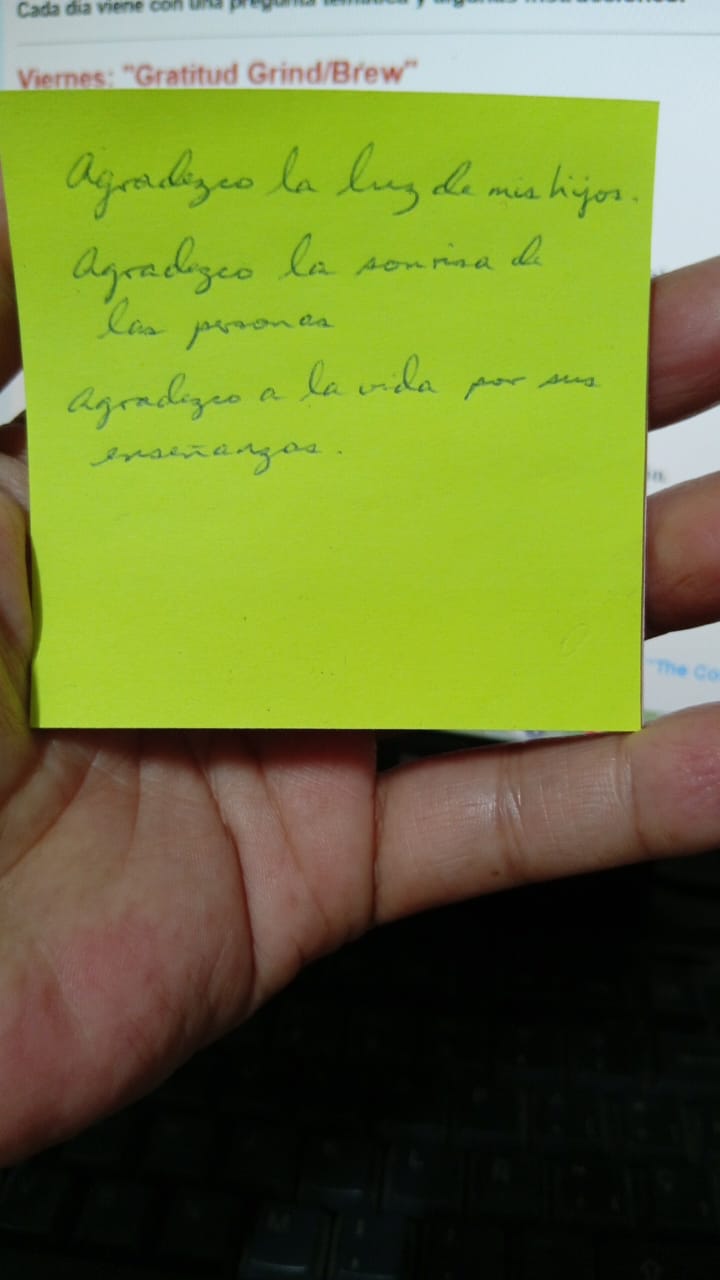 Cada día viene con una pregunta temática y algunas instrucciones.
Viernes: "Gratitud Grind/Brew"
Agradezco la luz de mis hijos.
Agradezco la sonrisa de
las personas
Agradezco a la vida por sus
enseñanzas.
"The Co